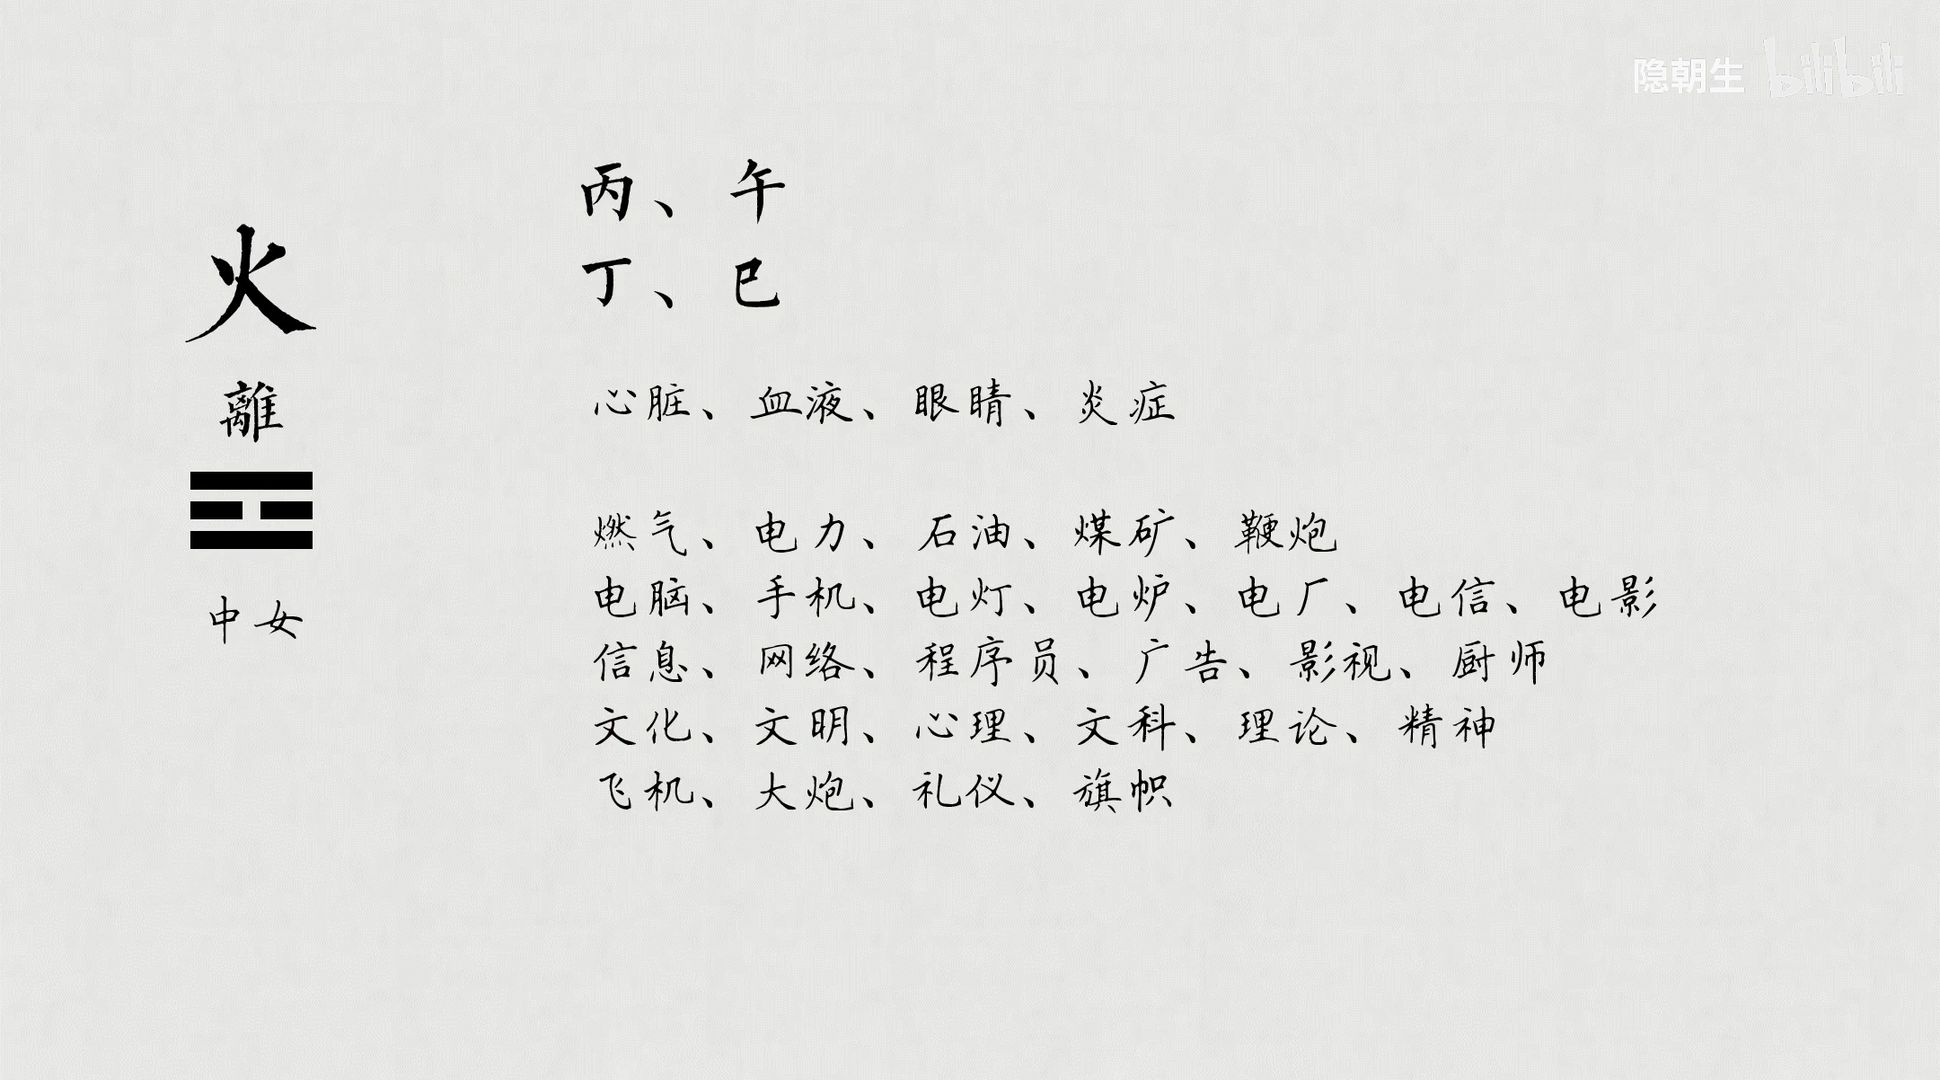 隐朝生 bilibili
火
離
中女
丙、午
丁、巳
心脏、血液、眼睛、炎症
燃气、电力、石油、煤矿、鞭炮
电脑、手机、电灯、电炉、电厂、电信、电影
信息、网络、程序员、广告、影视、厨师
文化、文明、心理、文科、理论、精神
飞机、大炮、礼仪、旗帜